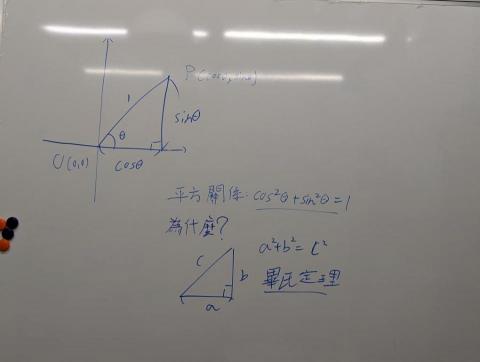 P(cosθ, sinθ)
1
sinθ
θ
O(0,0)
cosθ
平方關係: cos²θ+sin²θ=1
為什麼?
c
b
a
a²+b²=c²
畢氏定理